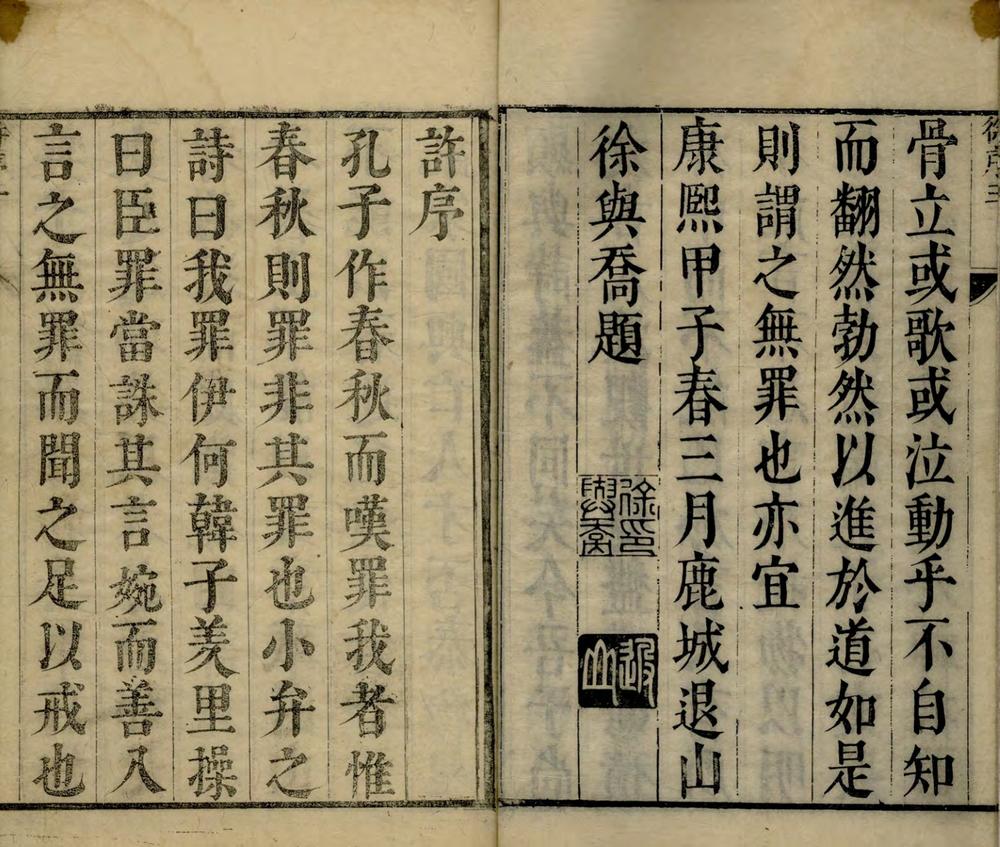 骨立或歌或泣動乎不自知
而翻然勃然以進於道如是
則謂之無罪也亦宜
康熙甲子春三月鹿城退山
徐與喬題
徐與喬印
退山
許序
孔子作春秋而嘆罪我者惟
春秋則罪非其罪也小弁之
詩曰我罪伊何韓子羑里操
曰臣罪當誅其言婉而善入
言之無罪而聞之足以戒也